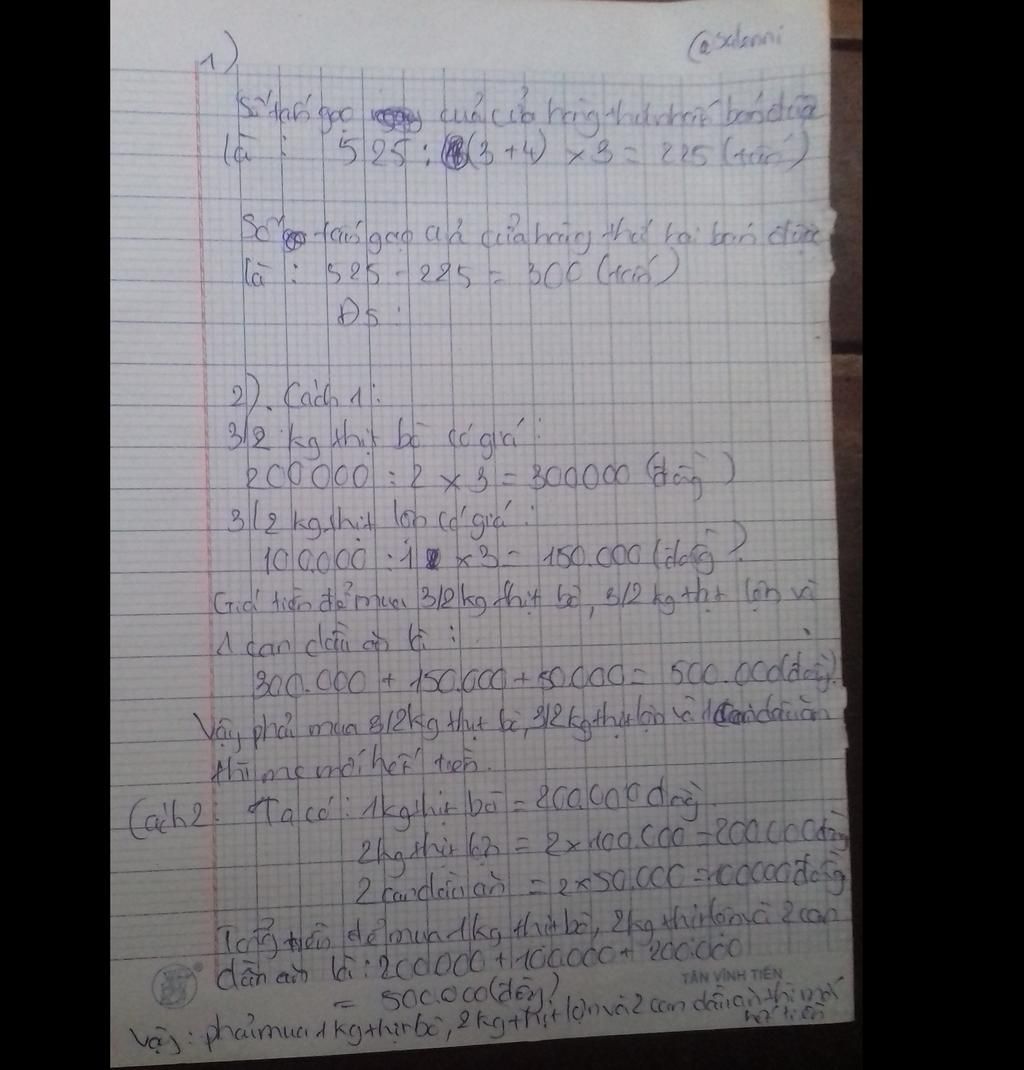 @solanni
1)
Số tấn gạo của cửa hàng thứ nhất bán được
là : 525 : (3 + 4) x 3 = 225 (tấn)
Số tấn gạo cửa hàng thứ hai bán được
là : 525 - 225 = 300 (tấn)
ĐS :
2). Cách 1 :
3/2 kg thịt bò có giá :
200000 : 2 x 3 = 300000 (đồng)
3/2 kg thịt lợn có giá :
100.000 : x 3 = 150.000 (đồng)
Giá tiền để mua 3/2 kg thịt bò, 3/2 kg thịt lợn và
1 can dầu ăn là :
300.000 + 150.000 + 50000 = 500.000 (đồng).
Vậy phải mua 3/2kg thịt bò, 3/2kg thịt lợn và 1 can dầu ăn
thì mẹ mới hết tiền.
Cách 2 : Ta có : 1kg thịt bò = 200.000 đồng.
2kg thịt lợn = 2 x 100.000 = 200.000 đồng
2 can dầu ăn = 2 x 50.000 = 100000 đồng
Tổng tiền để mua 1kg thịt bò, 2kg thịt lợn và 2 can
dầu ăn là : 200000 + 100000 + 200.000
TÂN VĨNH TIẾN
= 500.000 (đồng)
Vậy : phải mua 1kg thịt bò, 2kg thịt lợn và 2 can dầu ăn thì mới
hết tiền